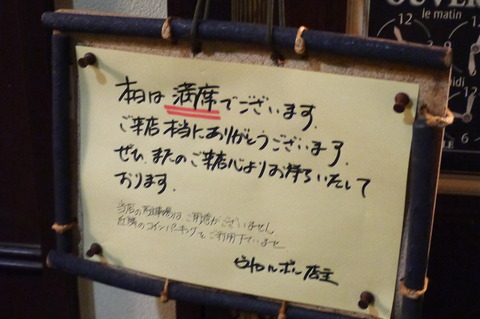 OUVER
le matin
12
12
6
本日は満席でございます.
ご来店本当にありがとうございます.
ぜひ、またのご来店心よりお待ちいたして
おります.
当店の駐車場はご用意がございません
近隣のコインパーキングをご利用下さいませ
店主